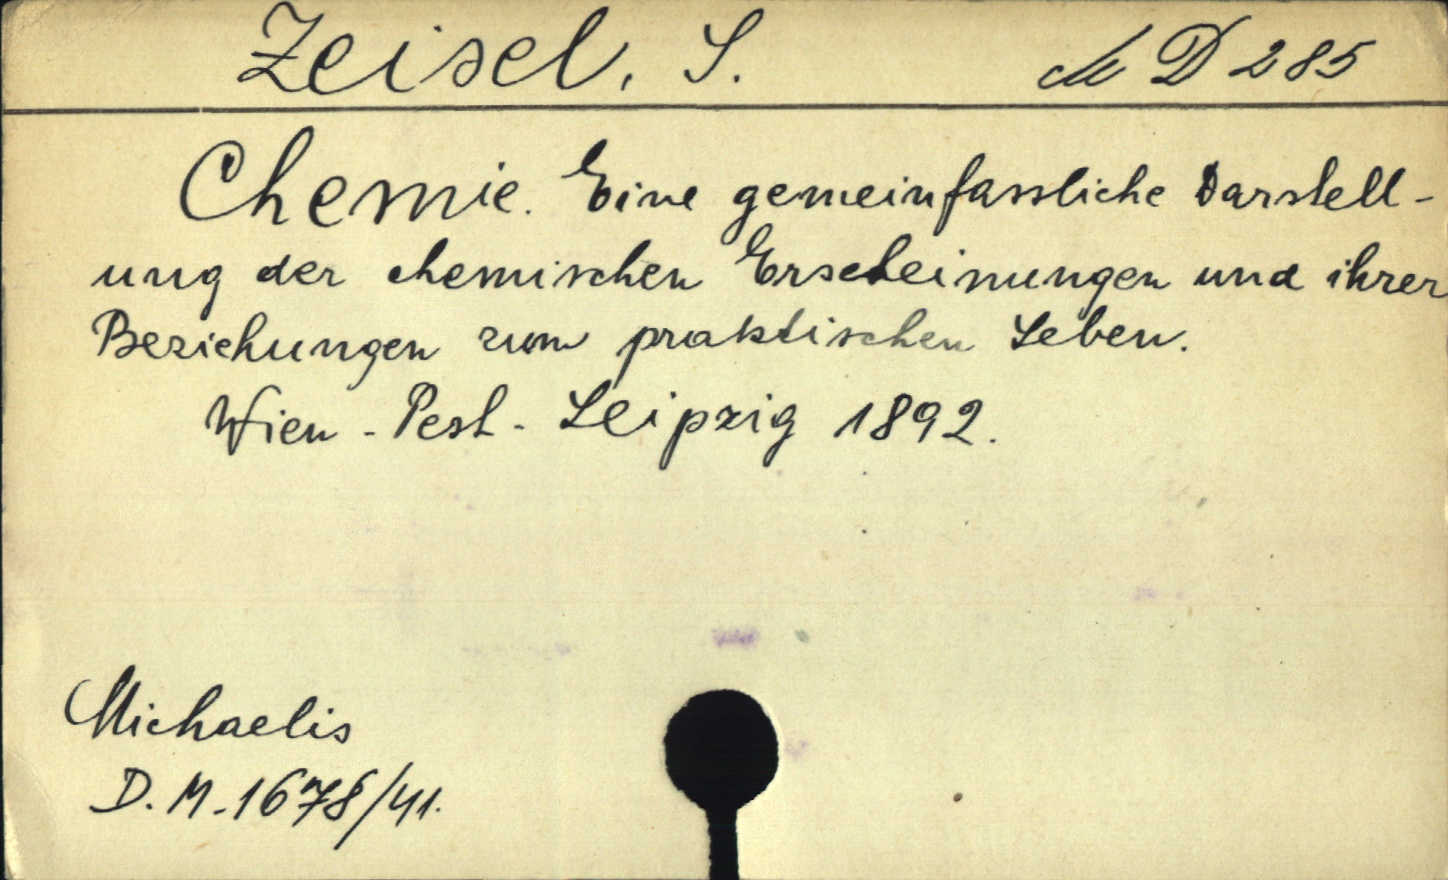 Zeisel, S. M D 285
Chemie. Eine gemeinfassliche Darstell-
ung der chemischen Erscheinungen und ihrer
Beziehungen zum praktischen Leben.
Wien - Pest - Leipzig 1892.
Michaelis
D. M. 1678/41.